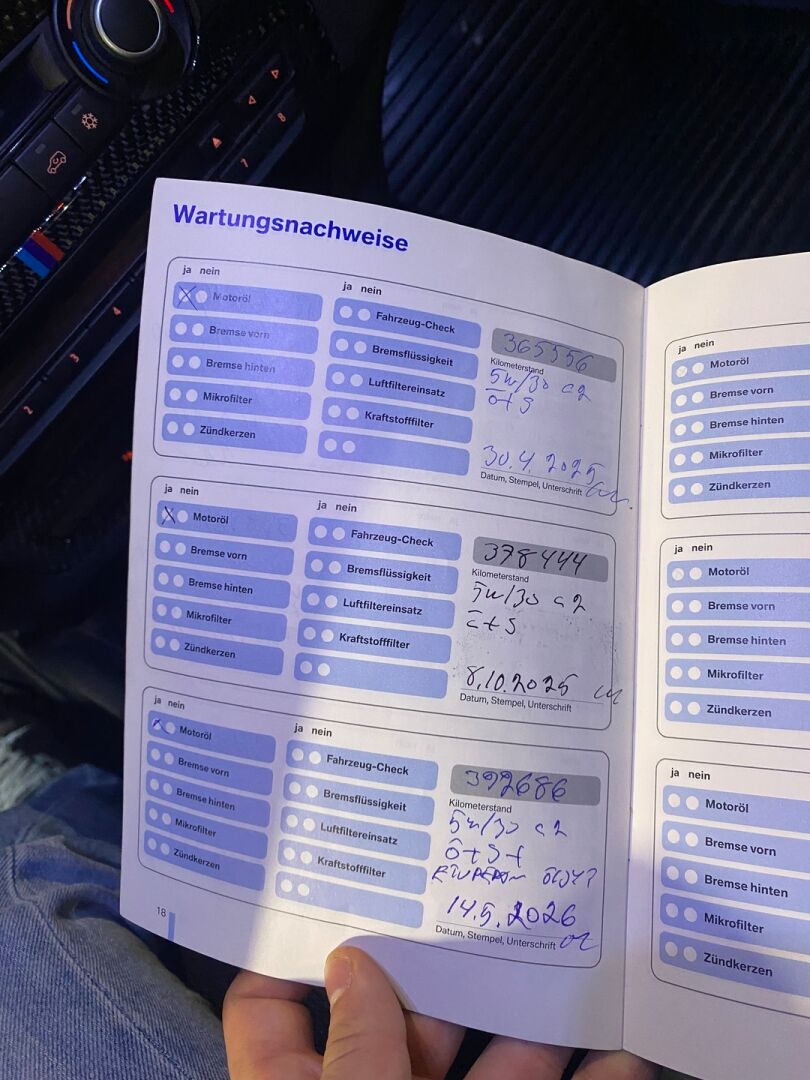 Wartungsnachweise
ja nein
Motoröl
Bremse vorn
Bremse hinten
Mikrofilter
Zündkerzen
ja nein
Fahrzeug-Check
Bremsflüssigkeit
Luftfiltereinsatz
Kraftstofffilter
365556
Kilometerstand
5w/30 c2
ö+s
30.4.2025
Datum, Stempel, Unterschrift
ja nein
Motoröl
Bremse vorn
Bremse hinten
Mikrofilter
Zündkerzen
ja nein
Fahrzeug-Check
Bremsflüssigkeit
Luftfiltereinsatz
Kraftstofffilter
378444
Kilometerstand
5w/30 c2
ö+s
8.10.2025
Datum, Stempel, Unterschrift
ja nein
Motoröl
Bremse vorn
Bremse hinten
Mikrofilter
Zündkerzen
ja nein
Fahrzeug-Check
Bremsflüssigkeit
Luftfiltereinsatz
Kraftstofffilter
392686
Kilometerstand
5w/30 c2
ö+s+
14.5.2026
Datum, Stempel, Unterschrift
18
ja nein
Motoröl
Bremse vorn
Bremse hinten
Mikrofilter
Zündkerzen
ja nein
Motoröl
Bremse vorn
Bremse hinten
Mikrofilter
Zündkerzen
ja nein
Motoröl
Bremse vorn
Bremse hinten
Mikrofilter
Zündkerzen
2
3
4
7
8